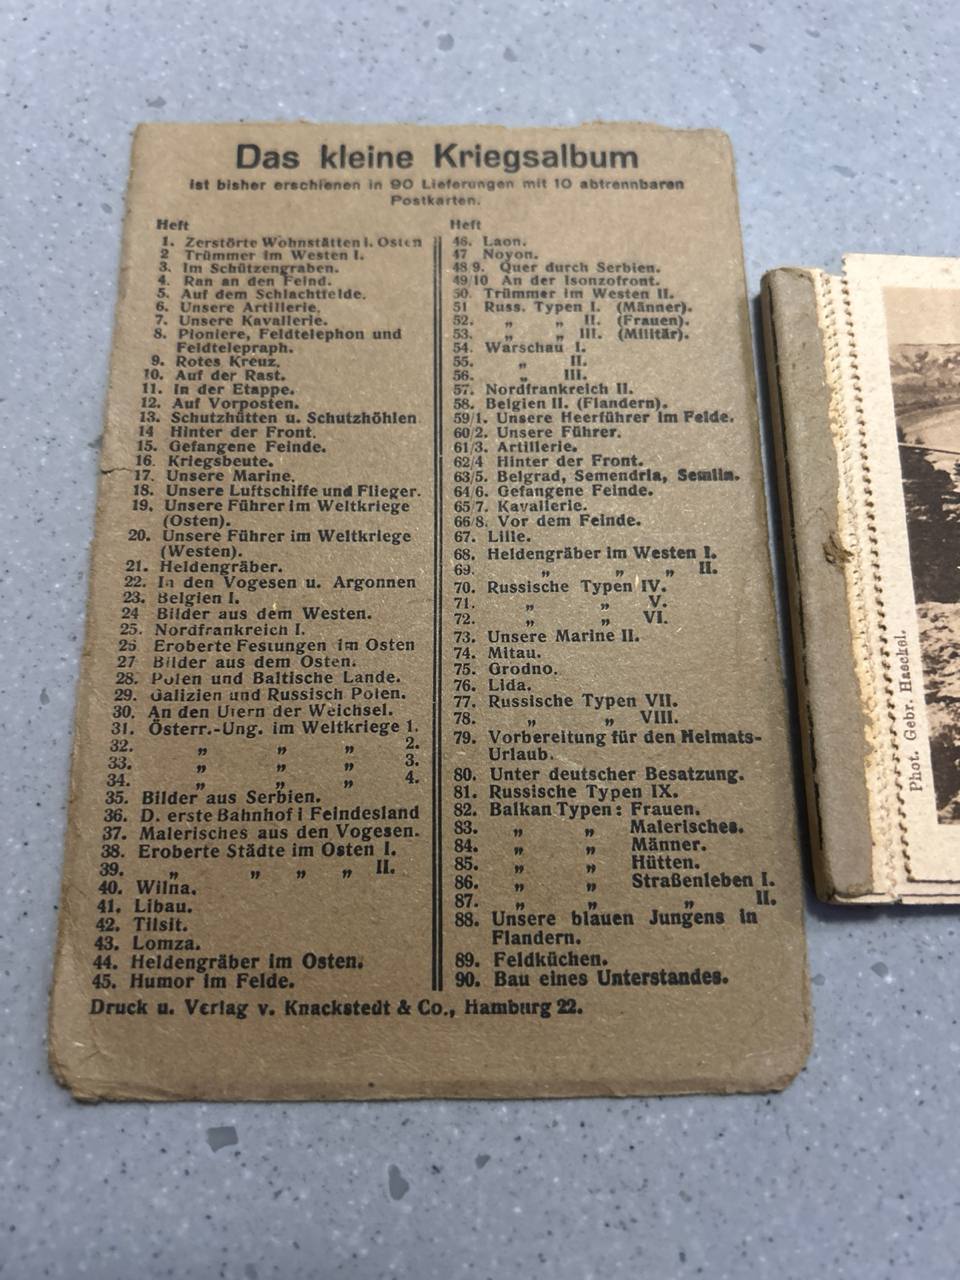 Das kleine Kriegsalbum
ist bisher erschienen in 90 Lieferungen mit 10 abtrennbaren
Postkarten.
Heft
1. Zerstörte Wohnstätten i. Osten
2 Trümmer im Westen I.
3. Im Schützengraben.
4. Ran an den Feind.
5. Auf dem Schlachtfelde.
6. Unsere Artillerie.
7. Unsere Kavallerie.
8. Pioniere, Feldtelephon und
Feldtelepraph.
9. Rotes Kreuz.
10. Auf der Rast.
11. In der Etappe.
12. Auf Vorposten.
13. Schutzhütten u. Schutzhöhlen
14 Hinter der Front.
15. Gefangene Feinde.
16. Kriegsbeute.
17. Unsere Marine.
18. Unsere Luftschiffe und Flieger.
19. Unsere Führer im Weltkriege
(Osten).
20. Unsere Führer im Weltkriege
(Westen).
21. Heldengräber.
22. In den Vogesen u. Argonnen
23. Belgien I.
24 Bilder aus dem Westen.
25. Nordfrankreich I.
26 Eroberte Festungen im Osten
27 Bilder aus dem Osten.
28. Polen und Baltische Lande.
29. Galizien und Russisch Polen.
30. An den Ufern der Weichsel.
31. Österr.-Ung. im Weltkriege 1.
32. „ „ „ 2.
33. „ „ „ 3.
34. „ „ „ 4.
35. Bilder aus Serbien.
36 D. erste Bahnhof i Feindesland
37. Malerisches aus den Vogesen.
38. Eroberte Städte im Osten I.
39. „ „ „ „ II.
40. Wilna.
41. Libau.
42. Tilsit.
43. Lomza.
44. Heldengräber im Osten.
45. Humor im Felde.
Heft
46. Laon.
47 Noyon.
48 9. Quer durch Serbien.
49/10 An der Isonzofront.
50. Trümmer im Westen II.
51 Russ. Typen I. (Männer).
52. „ „ II. (Frauen).
53. „ „ III. (Militär).
54. Warschau I.
55. „ II.
56. „ III.
57. Nordfrankreich II.
58. Belgien II. (Flandern).
59/1. Unsere Heerführer im Felde.
60/2. Unsere Führer.
61/3. Artillerie.
62/4 Hinter der Front.
63/5. Belgrad, Semendria, Semlin.
64 6. Gefangene Feinde.
65/7. Kavallerie.
66/8. Vor dem Feinde.
67. Lille.
68. Heldengräber im Westen I.
69. „ „ „ II.
70. Russische Typen IV.
71. „ „ V.
72. „ „ VI.
73. Unsere Marine II.
74. Mitau.
75. Grodno.
76. Lida.
77. Russische Typen VII.
78. „ „ VIII.
79. Vorbereitung für den Heimats-
Urlaub.
80. Unter deutscher Besatzung.
81. Russische Typen IX.
82. Balkan Typen: Frauen.
83. „ „ Malerisches.
84. „ „ Männer.
85. „ „ Hütten.
86. „ „ Straßenleben I.
87. „ „ „ II.
88. Unsere blauen Jungens in
Flandern.
89. Feldküchen.
90. Bau eines Unterstandes.
Druck u. Verlag v. Knackstedt & Co., Hamburg 22.
Phot. Gebr. Haeckel.